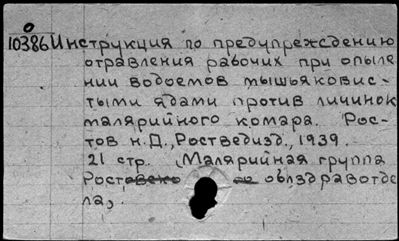 0
10386 Инструкция по предупреждению
отравления рабочих при опыле
нии водоемов мышьяковис-
тыми ядами против личинок
малярийного комара. Рос-
тов н.Д., Роствedизд., 1939.
21 стр. (Малярийная группа
Ростовско го облздравотде
ла).